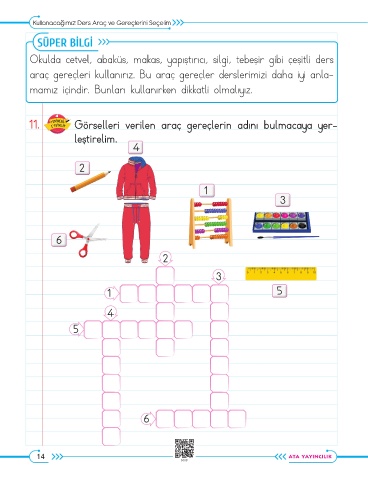 Kullanacağımız Ders Araç ve Gereçlerini Seçelim
SÜPER BİLGİ
Okulda cetvel, abaküs, makas, yapıştırıcı, silgi, tebeşir gibi çeşitli ders
araç gereçleri kullanırız. Bu araç gereçler derslerimizi daha iyi anla-
mamız içindir. Bunları kullanırken dikkatli olmalıyız.
11. Görselleri verilen araç gereçlerin adını bulmacaya yer-
leştirelim.
4
2
1
3
6
2
3
1
5
4
5
6
14
ATA YAYINCILIK